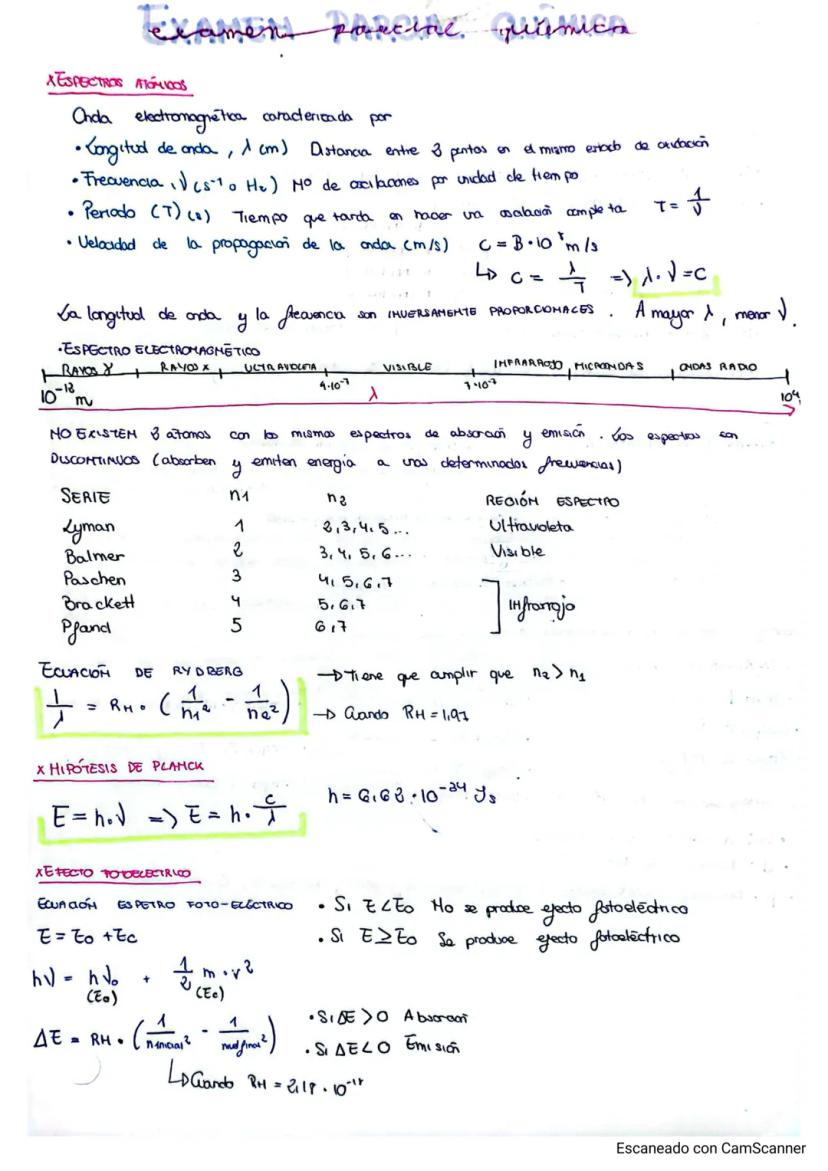 EXAMEN PARCIAL QUÍMICA
examen parcial química
x ESPECTROS ATÓMICOS
Onda electromagnética caracterizada por
• Longitud de onda, λ (m) Distancia entre 2 puntos en el mismo estado de oscilación
• Frecuencia, ν (s⁻¹ o Hz) Nº de oscilaciones por unidad de tiempo
• Periodo (T) (s) Tiempo que tarda en hacer una oscilación completa T = 1/ν
• Velocidad de la propagación de la onda (m/s) C = 3·10⁸ m/s
↳ C = λ/T => λ·ν = C
La longitud de onda y la frecuencia son INVERSAMENTE PROPORCIONALES. A mayor λ, menor ν.
• ESPECTRO ELECTROMAGNÉTICO
RAYOS γ RAYOS X ULTRAVIOLETA VISIBLE INFRARROJO MICROONDAS ONDAS RADIO
10⁻¹² m 4·10⁻⁷ λ 7·10⁻⁷ 10⁴
NO EXISTEN 2 átomos con los mismos espectros de absorción y emisión. Los espectros son
DISCONTINUOS (absorben y emiten energía a unas determinadas frecuencias)
SERIE n1 n2 REGIÓN ESPECTRO
Lyman 1 2,3,4,5... Ultravioleta
Balmer 2 3,4,5,6... Visible
Paschen 3 4,5,6,7
Brackett 4 5,6,7 Infrarrojo
Pfand 5 6,7
ECUACIÓN DE RYDBERG → Tiene que cumplir que n2 > n1
1/λ = RH · (1/n1² - 1/n2²) → Cuando RH = 1,97
x HIPÓTESIS DE PLANCK
E = h·ν => E = h · c/λ h = 6,63·10⁻³⁴ Js
x EFECTO FOTOELÉCTRICO
ECUACIÓN ESPETRO FOTO-ELÉCTRICO • Si E < Eo No se produce efecto fotoeléctrico
E = Eo + Ec • Si E ≥ Eo Se produce efecto fotoeléctrico
hν = hνo + 1/2 m·v²
(Eo) (Ec)
ΔE = RH · (1/n inicial² - 1/n final²) • Si ΔE > 0 Absorción
• Si ΔE < 0 Emisión
↳ Cuando RH = 2,18·10⁻¹⁸
Escaneado con CamScanner